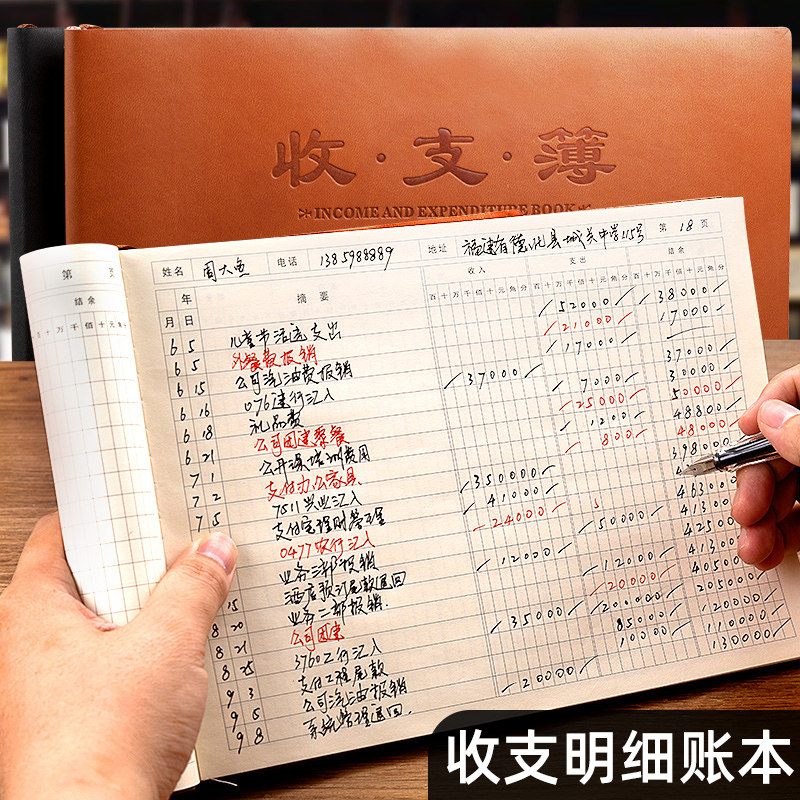 收·支·簿
INCOME AND EXPENDITURE BOOK
第 页
结余
十万千佰十元角
姓名 周大鱼 电话 1385988889 地址 福建省德化县城关中学115号 第 18 页
年 摘要 收入 支出 结余
月 日 百十万千佰十元角分 百十万千佰十元角分 百十万千佰十元角分
6 5 儿童节活动支出 52000 38000
6 5 外餐费报销 21000 17000
6 15 公司汽油费报销 17000
6 16 076建行汇入 37000 37000
6 18 礼品费 7000 30000
6 21 公司团建聚餐 25000 50000
7 1 公开课培训费用 1200 48800
7 2 支付办公家具 800 48000
7 5 7511兴业汇入 350000 398000
支付宝理财 41000
0477农行汇入 24000 463000
业务三部报销 50000 413000
酒店预订尾款退回 12000 425000
15 业务二部报销 12000 413000
8 20 公司团建 20000 405000
8 21 3760工行汇入 35000 200000 205000
8 25 支付工程尾款 85000 120000
9 3 公司汽油报销 10000 110000
9 5 系统管理退回 20000 130000
9 8
收支明细账本